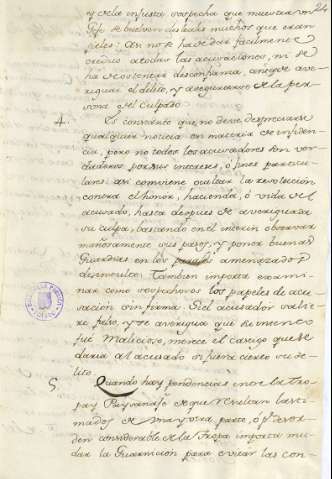 24
y de la injusta sospecha que muestra un
Gefe se buelven desleales muchos que eran
fieles: Asi no se ha de dar facilmente
credito a todas las acusaciones, ni se
ha de ostentar desconfianza, antes de ave-
riguar el delito, y asegurarse de la per-
sona del culpado.
4. Es constante que no debe despreciarse
qualquiera noticia en materia de infiden-
cia, pero no todos los acusadores son ver-
daderos por sus intereses, ó fines particu-
lares: asi conviene ocultar la resolucion
contra el honor, hacienda, ó vida del
acusado, hasta despues de averiguada
su culpa, bastando en el interin observar
mañosamente sus pasos, y poner buenas
Guardias en los parages amenazados
. Tambien importa exami-
nar como sospechosos los papeles de acu-
sación sin firma. Si el acusador salie-
re falso, y se averigua que su intento
fué Malicioso, merece el castigo que se
daria al acusado si fuera cierto su de-
lito.
5. Quando hay pendencias entre la Tro-
pa y Paysanage de que resultan lasti-
mados de una y otra parte, ó por desor-
den considerable de la Tropa importa mu-
dar la Guarnicion para evitar las con-